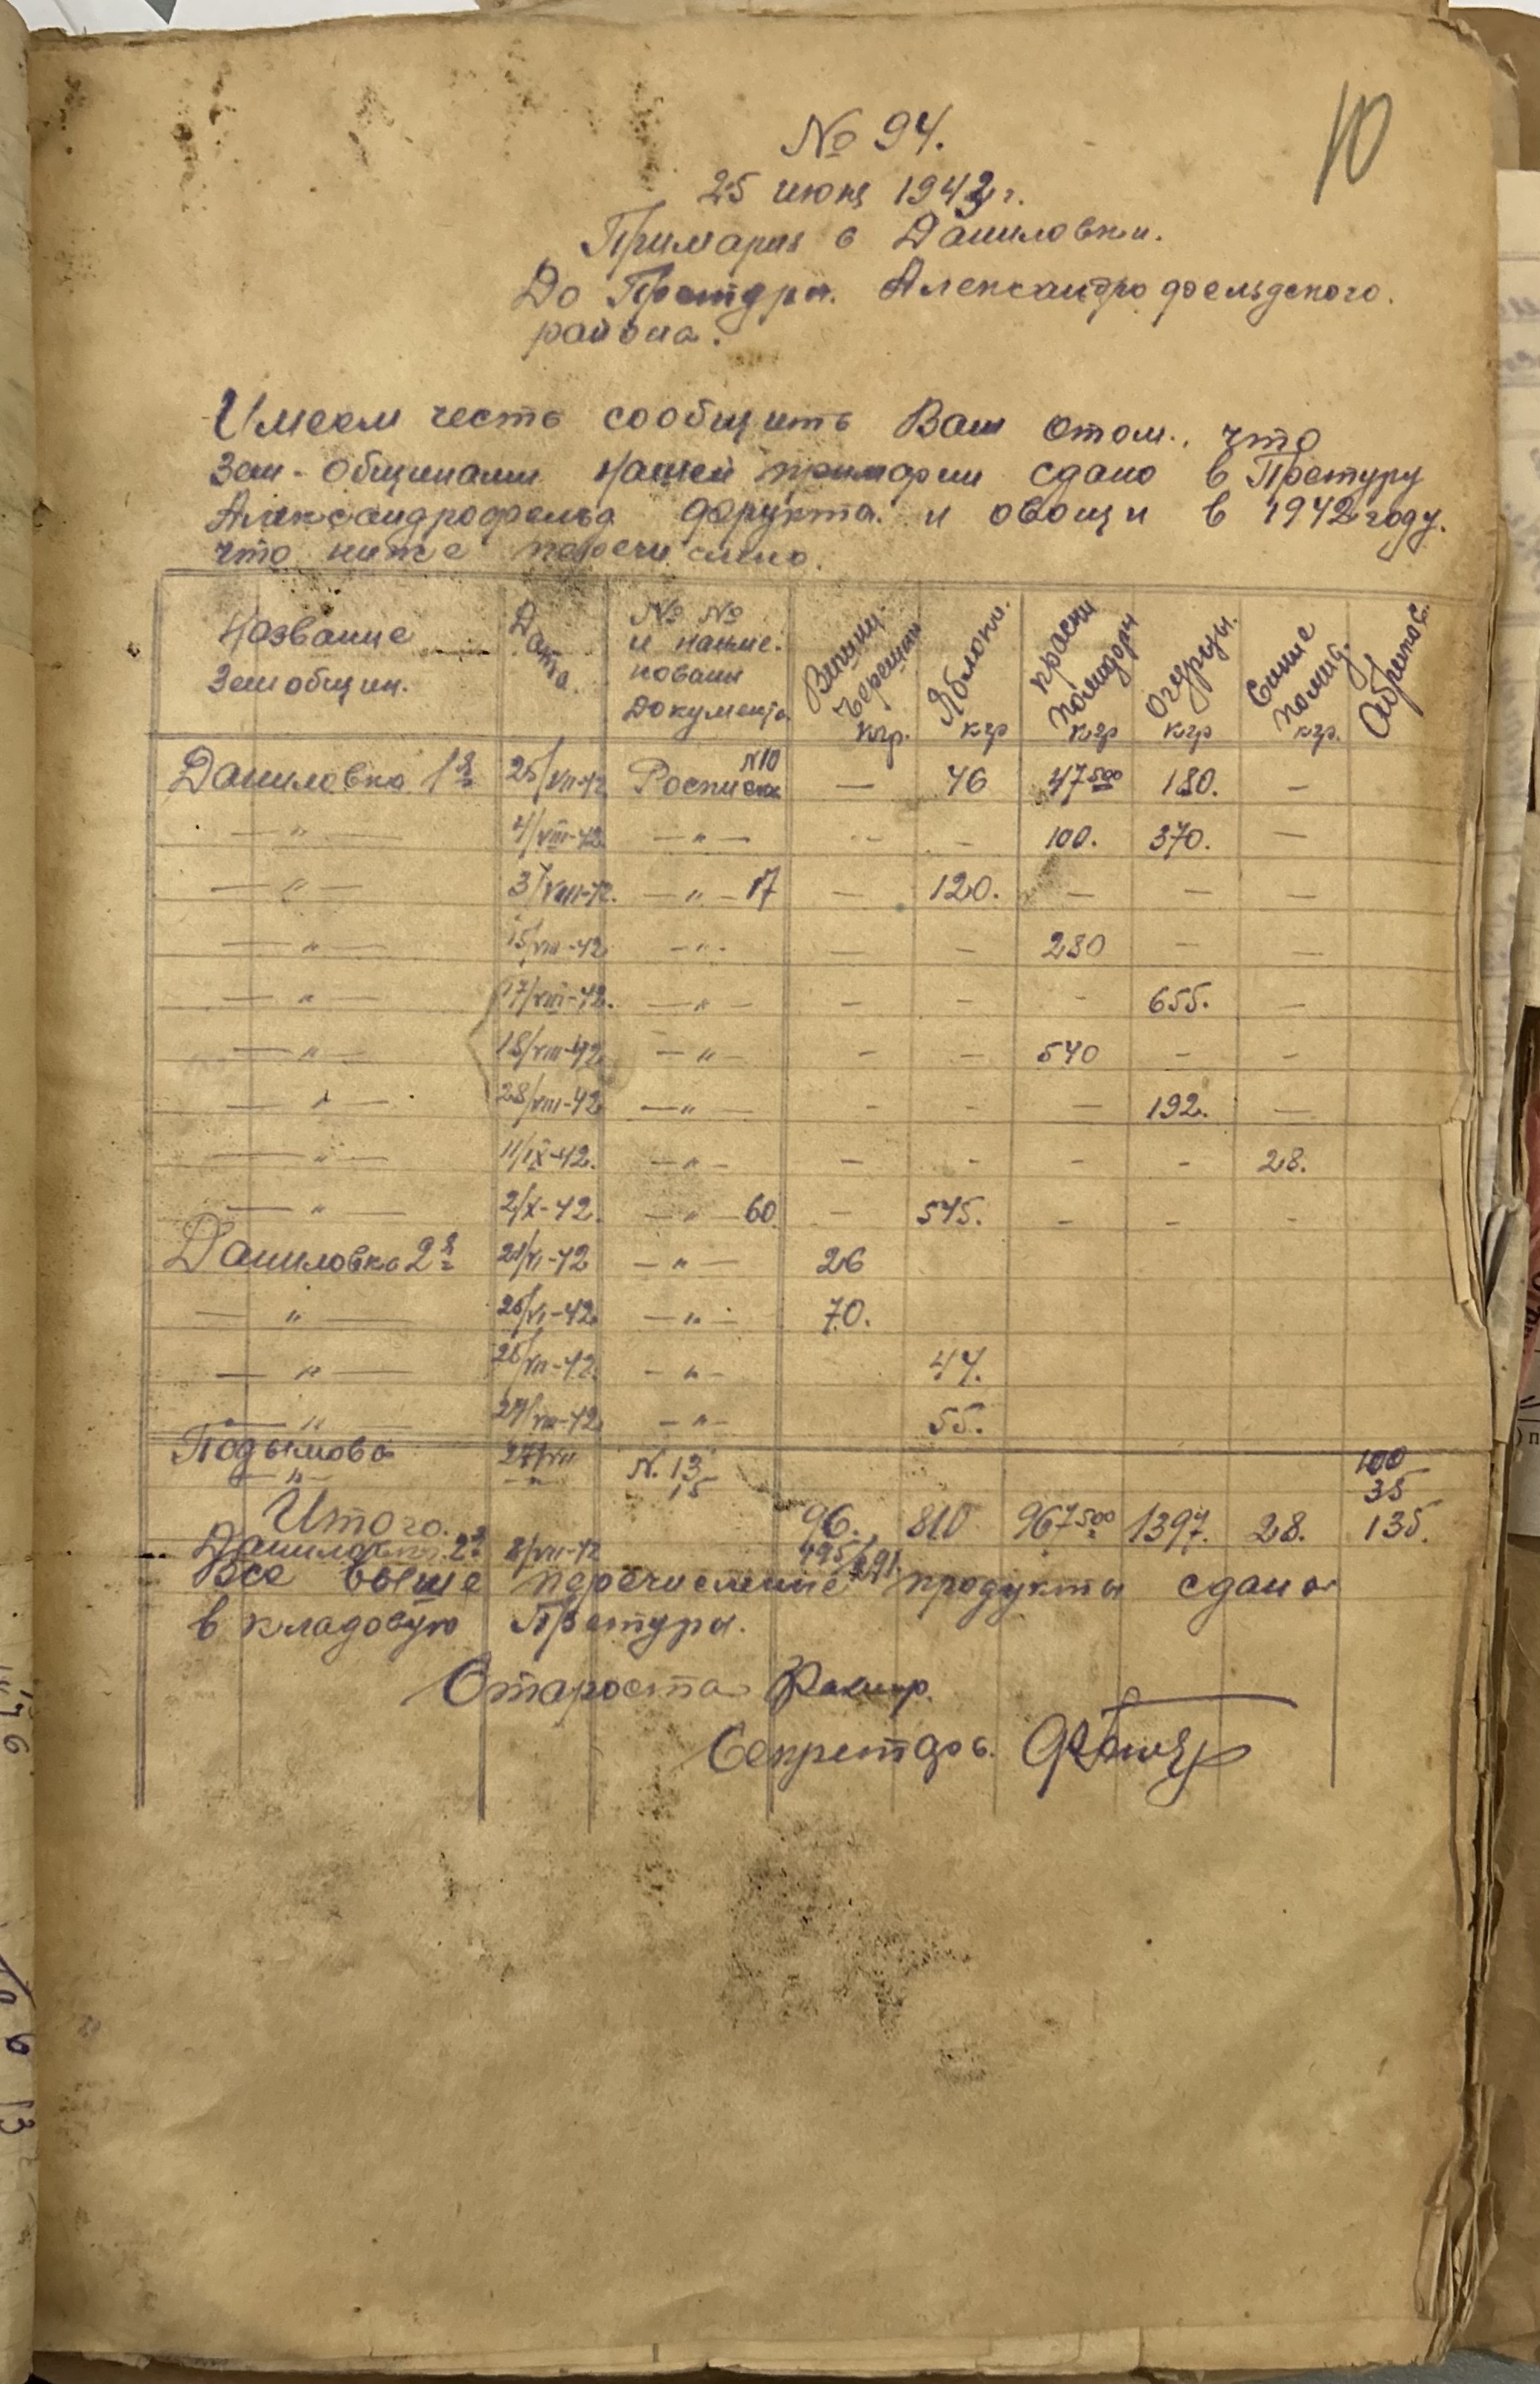 10
№ 94.
25 июня 1943 г.
Примария в Даниловки.
До Претуры. Александрофельдского.
района.
Имеем честь сообщить Вам отом., что
Зем-общинами нашей примарии сдано в Претуру
Александрофельд фрукта. и овощи в 1942 году.
что ниже перечислено.
Название Земобщин. Дата. №№ и наиме. нования Документа Вишни. черешни кгр. Яблоки. кгр красни помидоры кгр Огурцы. кгр Синие помид. кгр. Абрикос
Даниловка 1я 25/VII-42 Росписка №10 — 46 47500 180. —
— " — 4/VIII-42 — " — - - — 100. 370. —
— " — 3/VIII-42. — " — 17 — 120. — — —
— " — 15/VIII-42 — " - — — 280 —
— " — 17/VIII-42. — " — — - - 655. —
— " — 18/VIII-42 — " — - — 540 - -
— " — 28/VIII-42 — " — - - — 192. —
— " — 11/IX-42. — " — — - - - 28.
— " — 2/X-42. — " — 60 — 545. - - -
Даниловка 2я 21/VI-42 — " — 26
— " — 25/VI-42 — " — 70.
— " — 26/VII-42. - " - 44.
— " — 27/VIII-42 — " — 55.
Подымова 27/VII N. 13 100
— " — — " — 15 35
Итого. 96. 810 967500 1397. 28. 135.
Даниловка 2я 8/VII-42 495
Все выше перечисленые продукты сдана
в кладовую Претуры.
Староста
Секретарь.